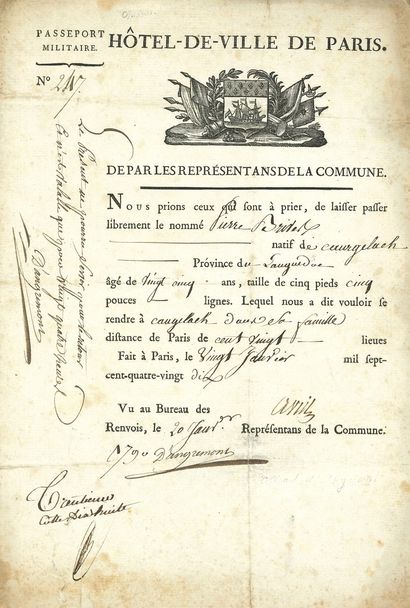 PASSEPORT
MILITAIRE.
HÔTEL-DE-VILLE DE PARIS.
Nº 247
DE PAR LES REPRÉSENTANS DE LA COMMUNE.
Nous prions ceux qui sont à prier, de laisser passer
librement le nommé Pierre
natif de
Province du Languedoc
âgé de Vingt cinq ans, taille de cinq pieds cinq
pouces lignes. Lequel nous a dit vouloir se
rendre à dans sa famille
distance de Paris de cent vingt lieues
Fait à Paris, le Vingt Janvier mil sept-
cent-quatre-vingt dix
Vu au Bureau des
Renvois, le 20 Janv.er Représentans de la Commune.
1790 Dangremont
Le présent ne pourra servir pour
que pour Vingt quatre heures
Dangremont